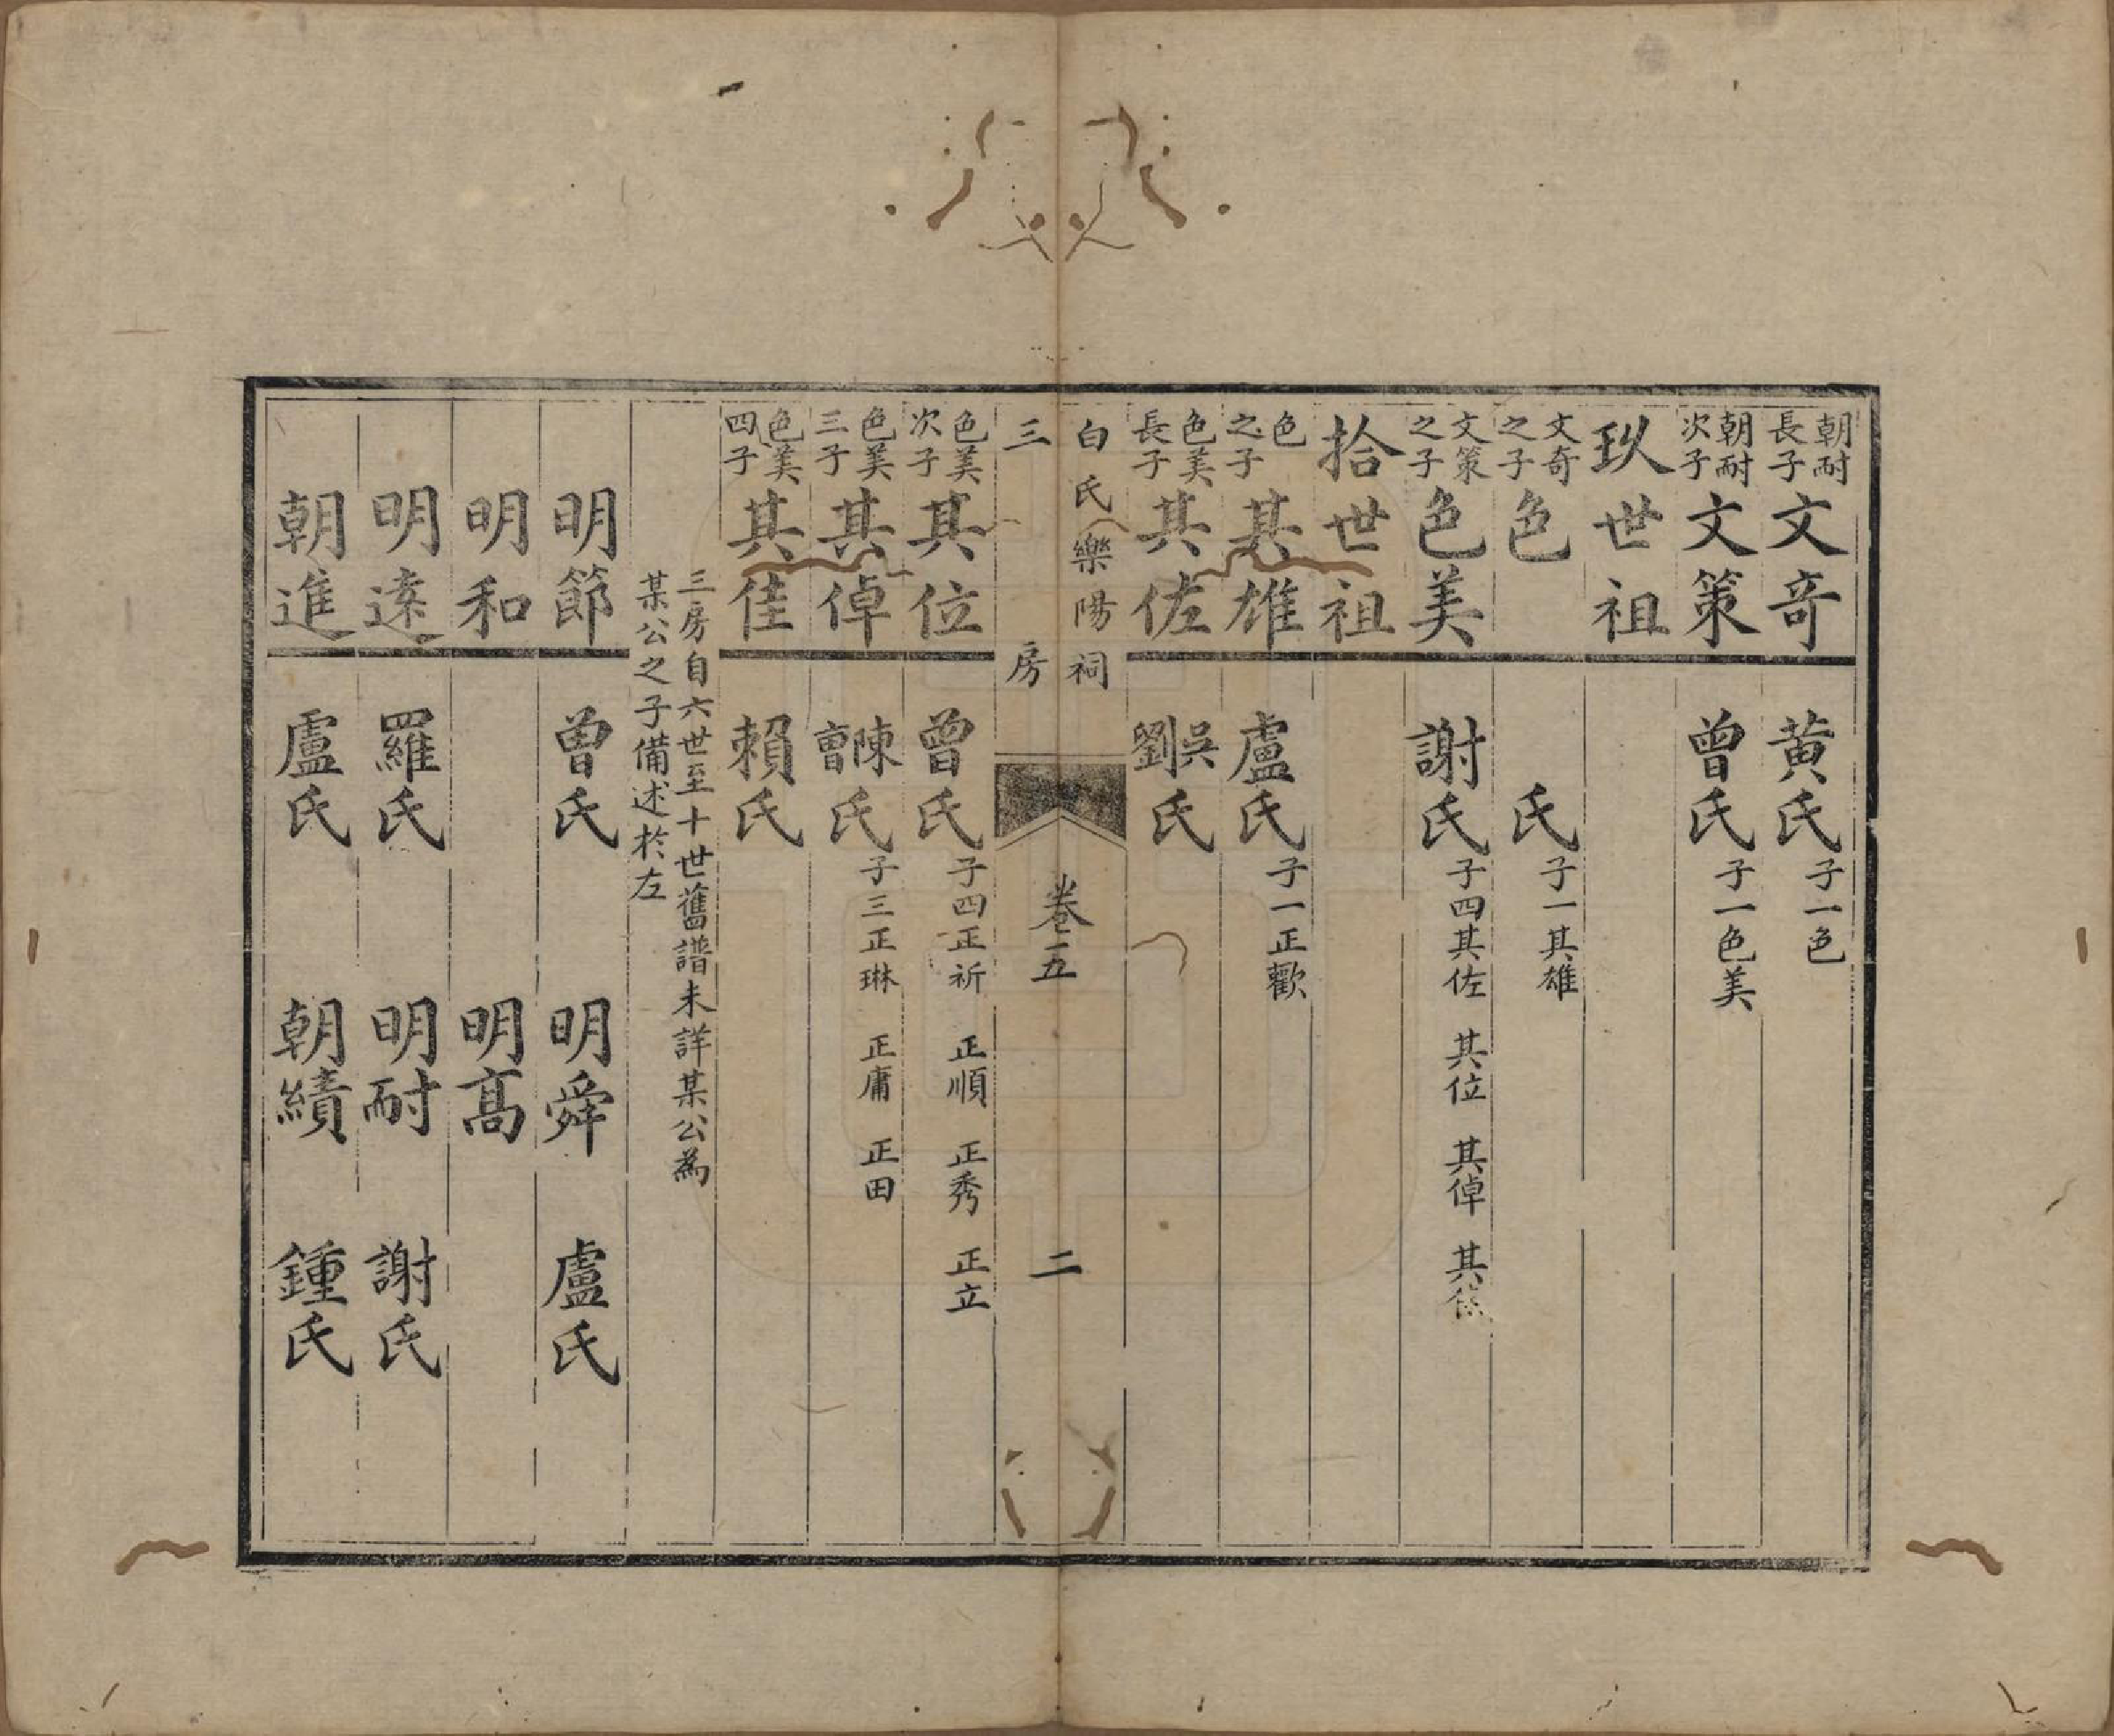 朝耐長子 文奇 黃氏 子一色
朝耐次子 文策 曾氏 子一色美
玖世祖
文奇之子 色 氏 子一其雄
文策之子 色美 謝氏 子四其佐 其位 其倬 其
拾世祖
色之子 其雄 盧氏 子一正歡
色美長子 其佐 吳劉氏
白氏樂陽祠
三房
卷五
二
色美次子 其位 曾氏 子四正祈 正順 正秀 正立
色美三子 其倬 陳曹氏 子三正琳 正庸 正田
色美四子 其佳 賴氏
三房自六世至十世舊譜未詳某公為
某公之子備述於左
明節 曾氏 明舜 盧氏
明和 明高
明遠 羅氏 明耐 謝氏
朝進 盧氏 朝績 鍾氏